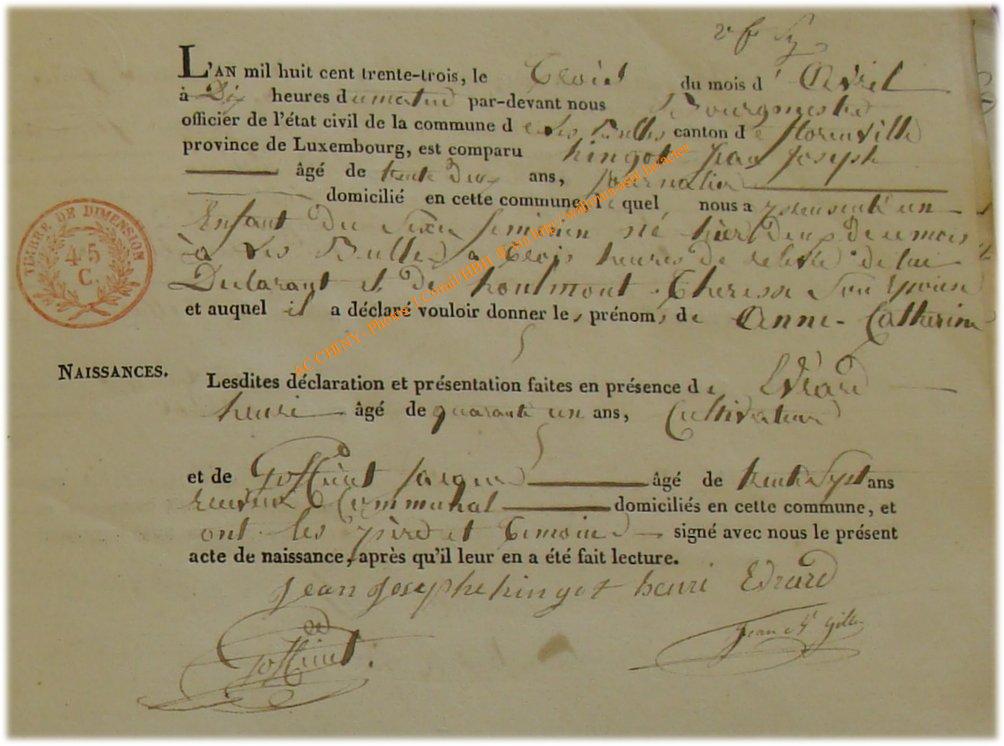 L'AN mil huit cent trente-trois, le trois du mois d'Avril
à Dix heures du matin par-devant nous Bourgmestre
officier de l'état civil de la commune de Les Bulles canton de florenville
province de Luxembourg, est comparu hingot jean joseph
âgé de trente Deux ans, journalier
domicilié en cette commune, lequel nous a presenté un
Enfant du Sexe feminin né hier deux de ce mois
à Les Bulles à trois heures de relevé de lui
Declarant et de Therese Son Epouse
et auquel il a déclaré vouloir donner les prénoms de Anne-Catherine
NAISSANCES.
Lesdites déclaration et présentation faites en présence de Evrard
henri âgé de quarante un ans, Cultivateur
et de Goffinet âgé de trente Sept ans
Receveur Communal domiciliés en cette commune, et
ont les père et temoins signé avec nous le présent
acte de naissance, après qu'il leur en a été fait lecture.
jean joseph hingot henri Evrard
Goffinet
TIMBRE DE DIMENSION
45
C.